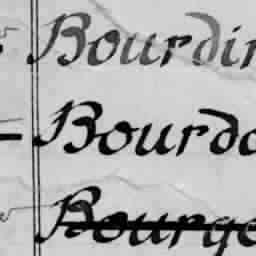 Bourdin
Bourdo
Bourge